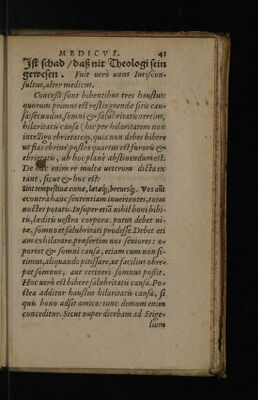 MEDICVS. 41
Ist schad / daß nit Theologi sein
gewesen. Fuit verò unus Iuriscon-
sultus, alter medicus.
Concessit sunt bibentibus tres haustus:
quorum primus est restinguendæ sitis cau-
sa: secundus, somni & salubritatis: tertius,
hilaritatis causa (hic per hilaritatem non
intelligo ebrietatem, quia non debes bibere
ut fias ebrius) postea quartus est furoris &
ebrietatis, ab hoc planè abstinendum est.
De hac enim re multa veterum dicta ex
tant, sicut & hoc est:
Sint tempestiuæ cœnæ, lætæq́;, breuesq́;. Vos aũt
econtra hanc sententiam inuertentes, totas
noctes potatis. Insuper etiã nihil boni bibi-
tis, læditis vestra corpora. potus debet vi-
tæ, somno et salubritati prodesse. Debet eti
am exhilarare, præsertim nos seniores: o-
portet & somni causa, etiam cum non si-
timus, aliquando pitissare, ut facilius obre-
pat somnus, aut retineri somnus possit.
Hoc verò est bibere salubritatis causa. Po-
stea additur haustus hilaritatis causa, si
quis bono adsit amico: tunc demum enim
conceditur. Sicut nuper dicebam ad Stige-
lium